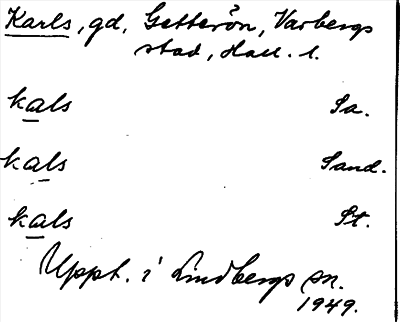 Karls, gd, Getterön, Varbergs
stad, Hall. l.
kals Sa.
kals Sand.
kals St.
Uppt. i Lindbergs sn.
1949.